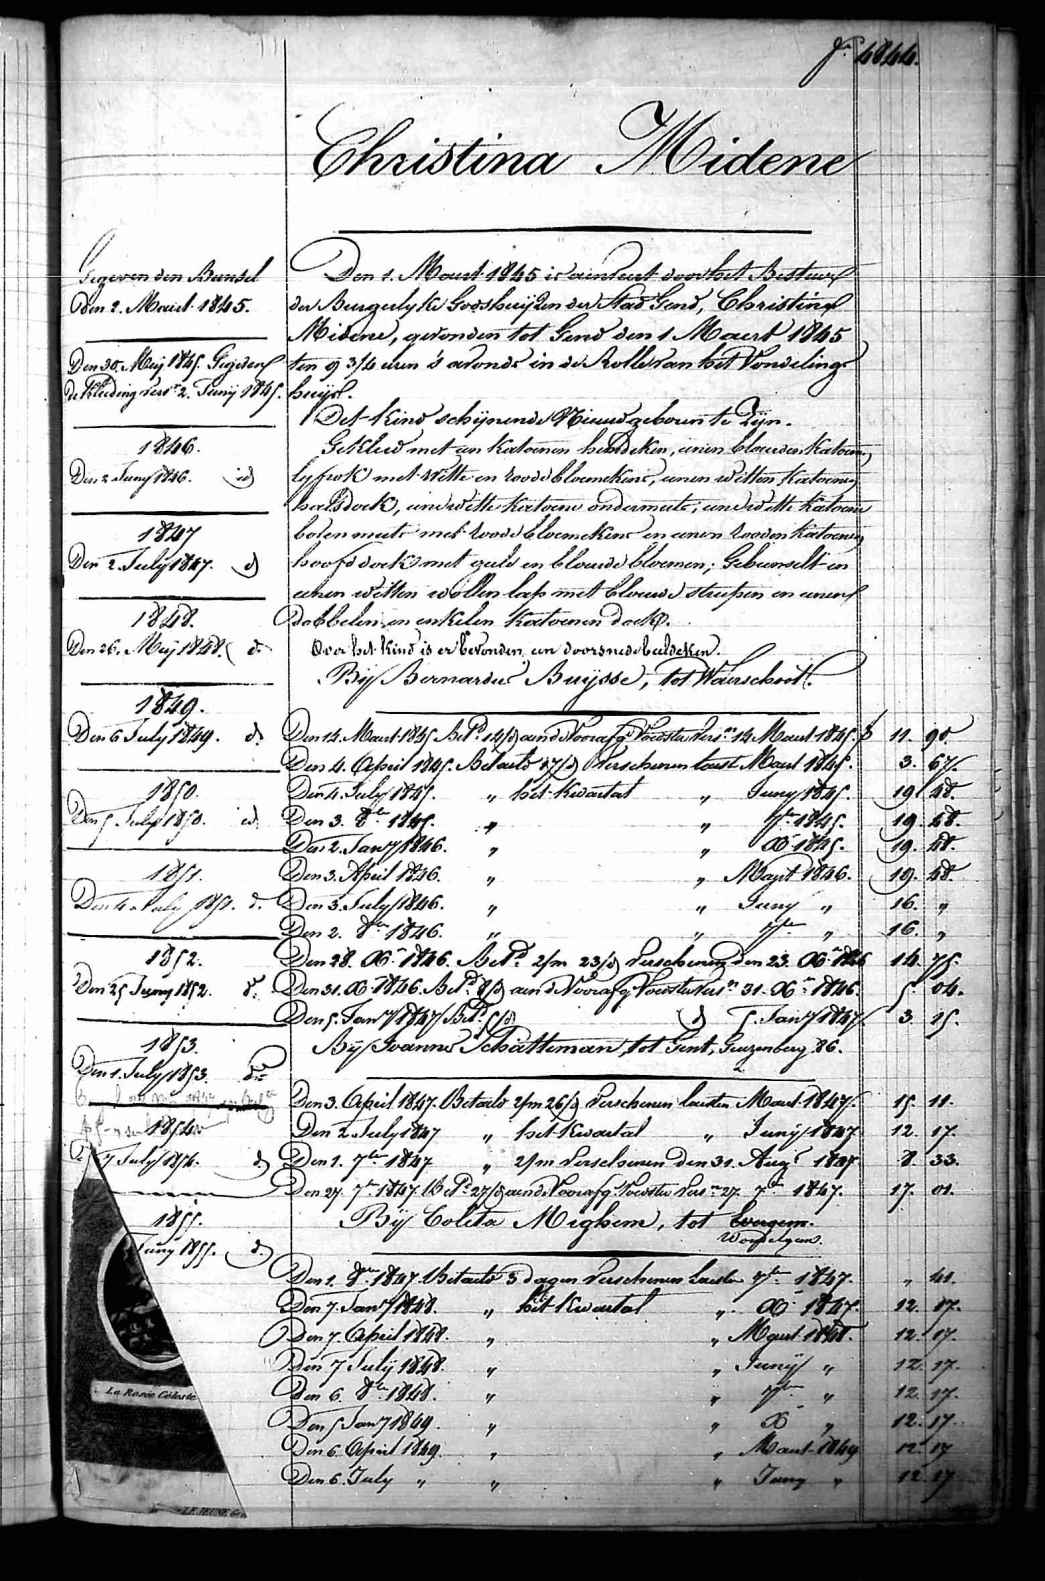 4844.
Christina Midene
Gegeven den Bunsel
Den 2. Maert 1845.
Den 30. Meij 1845. Gegeven
de Kleeding vers.n 2. Junij 1845.
1846.
Den 2 Junij 1846. id
1847
Den 2 July 1847. d
1848.
Den 26. Meij 1848. d.
1849.
Den 6 July 1849. d.
1850.
Den 5 July 1850. id.
1851.
Den 4 July 1851. d.
1852.
Den 25 Juny 1852. d.
1853.
Den 1. July 1853.
1854
7 July 1854. d
1855.
Juny 1855. d.
La Rosée Céleste
Den 1. Maert 1845 is aenveert door het Bestuur
der Burgelyke Godshuijzen der Stad Gend, Christina
Midene, gevonden tot Gend den 1 Maert 1845
ten 9 3/4 uren 's avonds in de Rolle van het Vondeling
huijs.
Det Kind schijnende Nieuwgeboren te Zijn.
Gekleed met een katoenen hemdeken, eenen blauwen katoenen
lyfrok met witte en roode bloemekens, eenen witten katoenen
halsdoek, eene witte katoene ondermuts, eene witte katoene
bovenmuts met roode bloemekens en eenen rooden katoenen
hoofddoek met gele en blauwe bloemen; Gebunselt in
eenen witten wollen lap met blauwe strepen en eenen
dobbelen en enkelen katoenen doek.
Over het kind is er bevonden een doorsnede beeldeken.
Bij Bernardus Buijsse, tot Waerschoot.
Den 14. Maert 1845. Bet.d 14/d aen de Voorafg Voester Vers.n 14 Maert 1845. f 11. 90
Den 4. April 1845. Betaeld 17/d Verschenen laest Maert 1845. 3. 67.
Den 4. July 1845. " het kwartal " Juny 1845. 19 48
Den 3. 8.er 1845. " " 7.er 1845. 19. 48.
Den 2. Jan.y 1846. " " X 1845. 19. 48.
Den 3. April 1846. " " Maert 1846. 19. 48
Den 3. July 1846. " " Juny " 16. "
Den 2. 8.er 1846. " " 7.er " 16. "
Den 28. X.r 1846. Bet.d 2/m 23/d Verschenen den 23. X.r 1846 14. 75.
Den 31. X 1846. Bet.d 8/d aen de Voorafg Voester Vers.n 31. X.r 1846. 5. 04.
Den 5. Jan.y 1847 Bet.d 5/d d 5. Jan.y 1847 3. 15.
Bij Joanne Schatteman, tot Gent, Geuzenberg 86.
Den 3. April 1847. Betaeld 2/m 26/d Verschenen laesten Maert 1847. 15. 11.
Den 2 July 1847 " het kwartal " Junij 1847 12. 17.
Den 1. 7.ber 1847 " 2/m Verschenen den 31. Aug.t 1847 8. 33.
Den 27. 7.r 1847. Bet.d 27/d aen de Voorafg Voester Vers.n 27. 7.r 1847. 17. 01.
Bij Coleta Mighem, tot Evergem.
Wondelgem.
Den 1. 8.er 1847. Betaeld 3 dagen Verschenen laesten 7.er 1847. " 41.
Den 7. Jan.y 1848. " het kwartal " X 1847. 12. 17.
Den 7. April 1848. " " Maert 1848. 12. 17.
Den 7 July 1848. " " Junij " 12. 17.
Den 6. 8.er 1848. " " 7.er " 12. 17.
Den 5 Jan.y 1849. " " X " 12. 17.
Den 6. April 1849. " " Maert 1849 12. 17
Den 6. July " " " Juny " 12 17